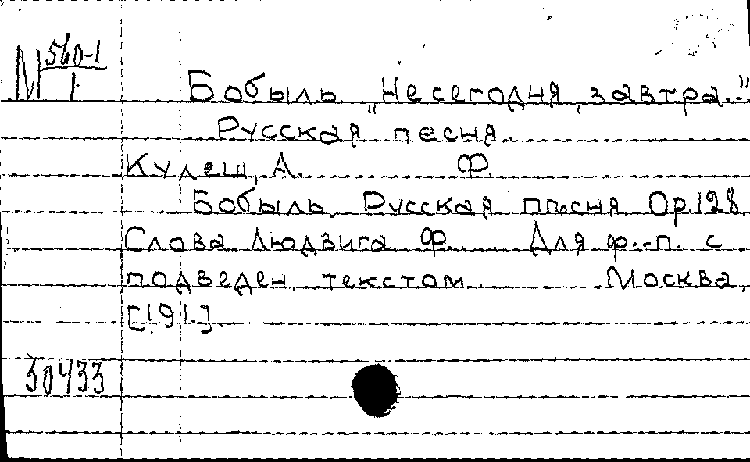 М 560-1
1
Бобыль „Не сегодня, завтра..."
Русская песня.
Кулеш, А. Ф.
Бобыль. Русская песня Op.128.
Слова Людвига Ф. Для ф.-п. с
подведен. текстом. Москва,
[191.]
30433